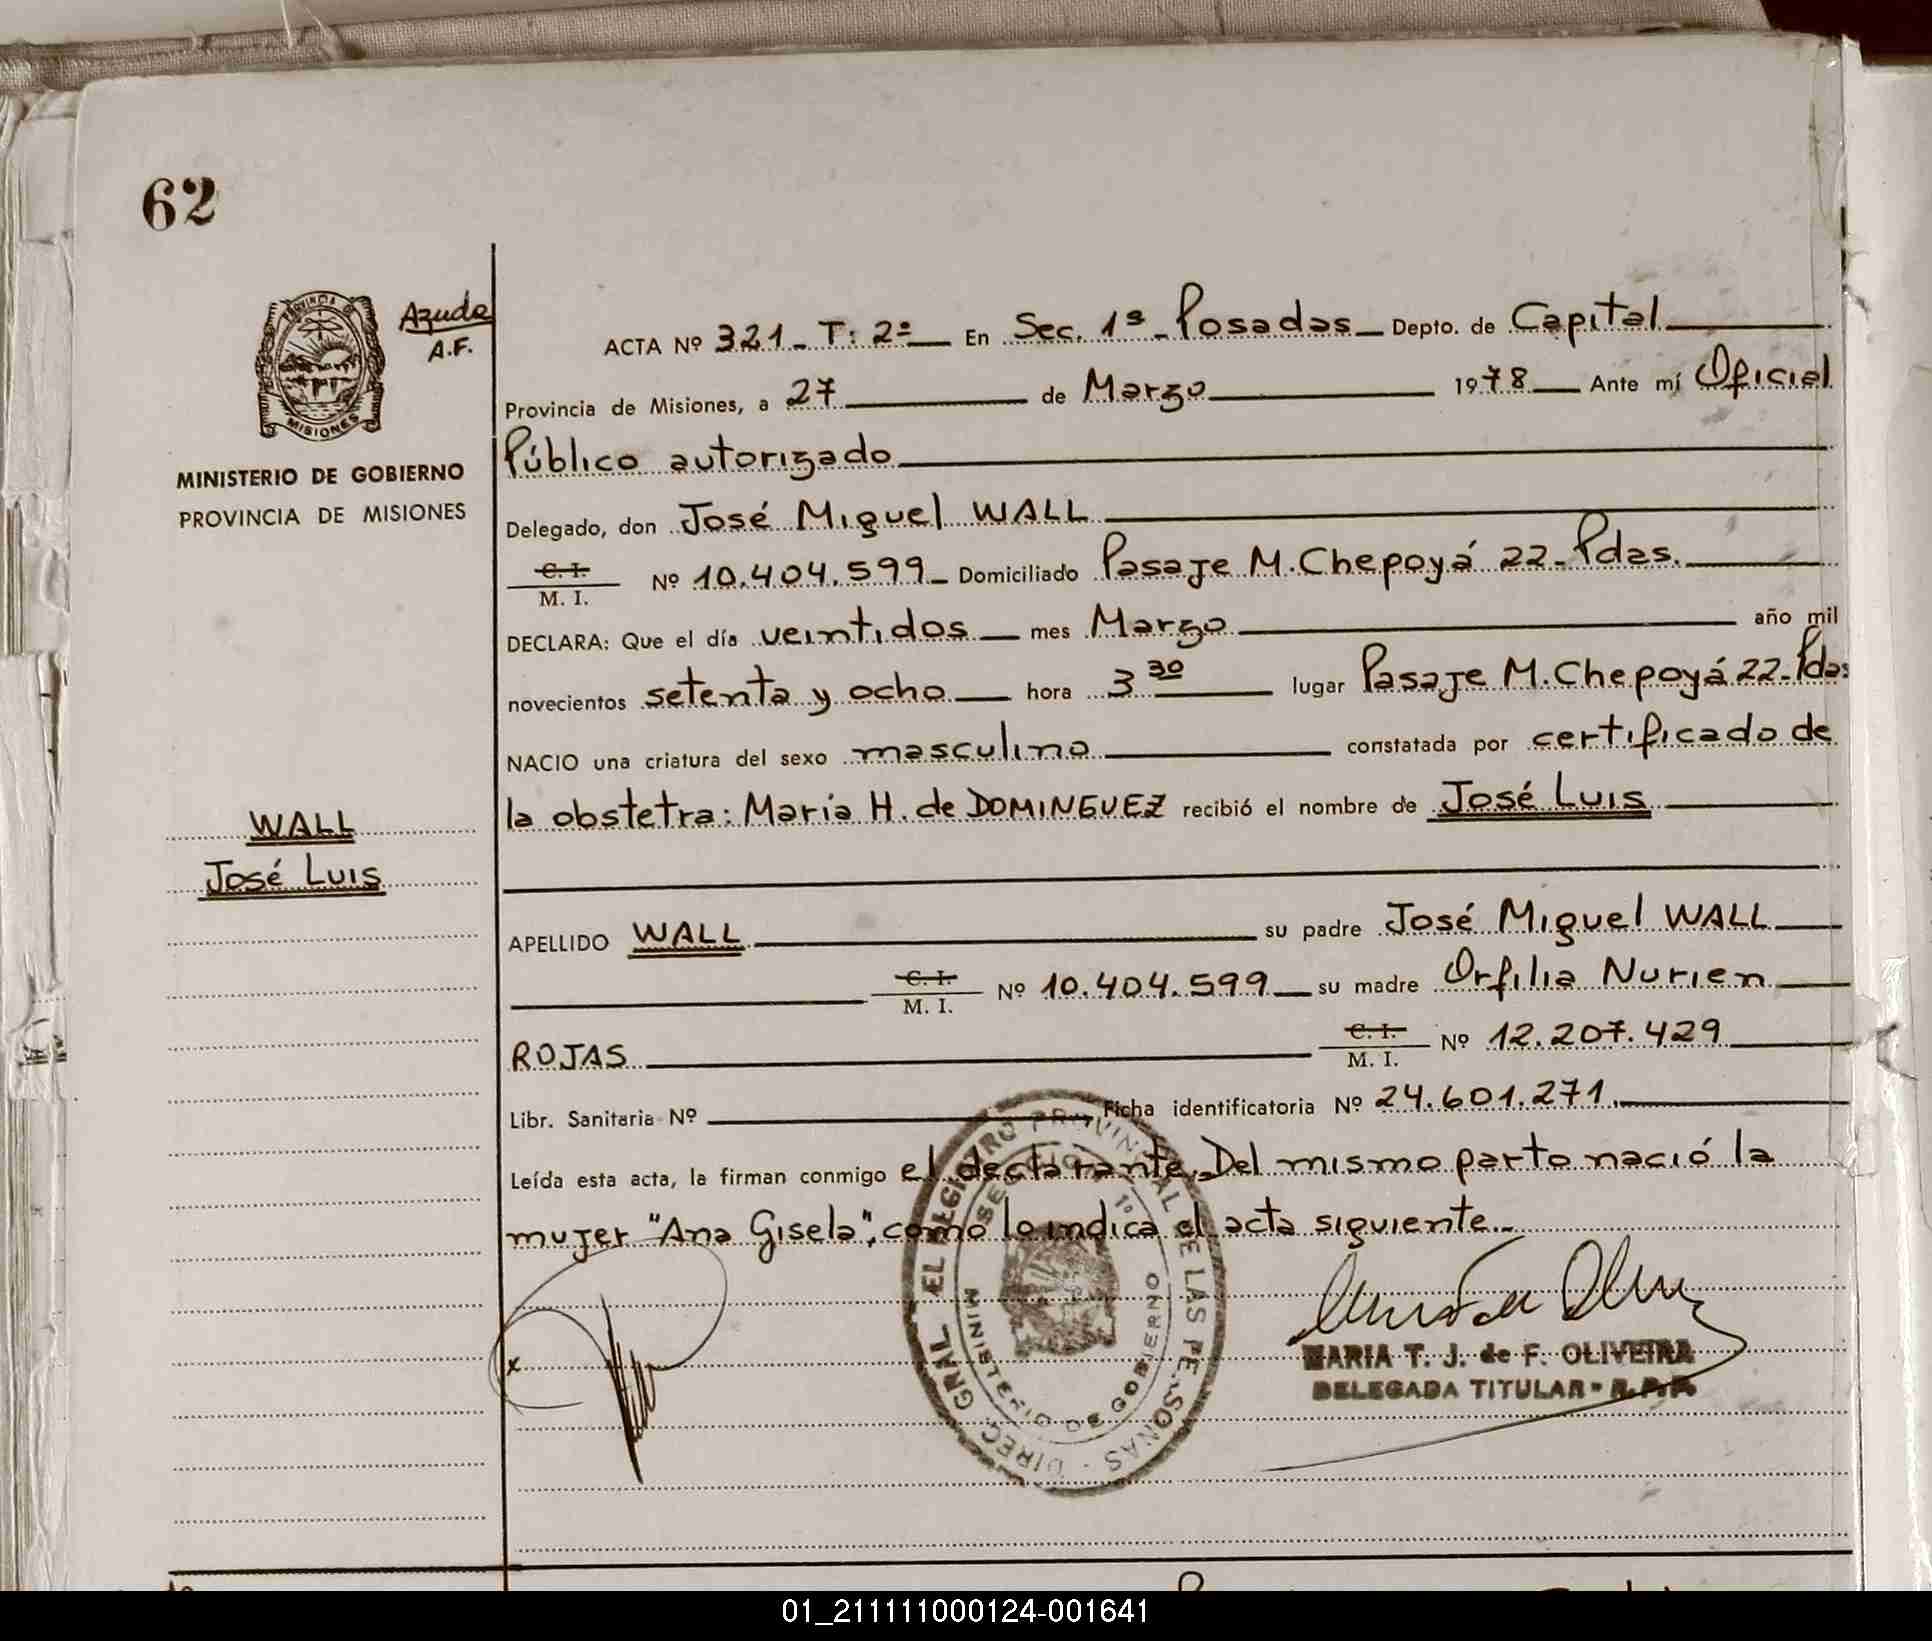 62
PROVINCIA DE
MISIONES
Azuda
A.F.
MINISTERIO DE GOBIERNO
PROVINCIA DE MISIONES
ACTA Nº 321 - T: 2º En Sec. 1ª - Posadas Depto. de Capital
Provincia de Misiones, a 27 de Marzo 1978 Ante mí Oficial
Público autorizado
Delegado, don José Miguel WALL
C. I.
M. I. Nº 10.404.599 - Domiciliado Pasaje M. Chepoyá 22 - Pdas.
DECLARA: Que el día veintidos mes Marzo año mil
novecientos setenta y ocho hora 3 30 lugar Pasaje M. Chepoyá 22 - Pdas
NACIO una criatura del sexo masculino constatada por certificado de
la obstetra: Maria H. de DOMINGUEZ recibió el nombre de José Luis
WALL
José Luis
APELLIDO WALL su padre José Miguel WALL
C. I.
M. I. Nº 10.404.599 su madre Orfilia Nurien
ROJAS C. I.
M. I. Nº 12.207.429
Libr. Sanitaria Nº Ficha identificatoria Nº 24.601.271.
Leída esta acta, la firman conmigo el declarante. Del mismo parto nació la
mujer "Ana Gisela", como lo indica el acta siguiente.-
DIREC. GRAL. EL REGISTRO PROVINCIAL DE LAS PERSONAS
SECCION 1º
MINISTERIO DE GOBIERNO
x
MARIA T. J. de F. OLIVEIRA
DELEGADA TITULAR - R.P.P.
01_211111000124-001641